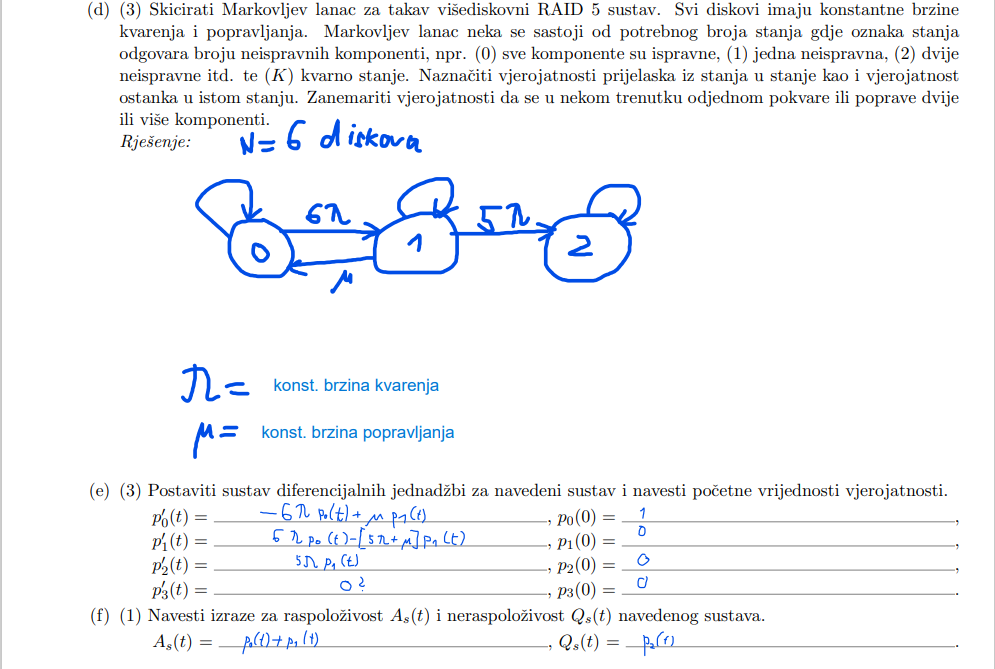 (d) (3) Skicirati Markovljev lanac za takav višediskovni RAID 5 sustav. Svi diskovi imaju konstantne brzine
kvarenja i popravljanja. Markovljev lanac neka se sastoji od potrebnog broja stanja gdje oznaka stanja
odgovara broju neispravnih komponenti, npr. (0) sve komponente su ispravne, (1) jedna neispravna, (2) dvije
neispravne itd. te (K) kvarno stanje. Naznačiti vjerojatnosti prijelaska iz stanja u stanje kao i vjerojatnost
ostanka u istom stanju. Zanemariti vjerojatnosti da se u nekom trenutku odjednom pokvare ili poprave dvije
ili više komponenti.
Rješenje: N=6 diskova
6λ 5λ
0 1 2
μ
λ= konst. brzina kvarenja
μ= konst. brzina popravljanja
(e) (3) Postaviti sustav diferencijalnih jednadžbi za navedeni sustav i navesti početne vrijednosti vjerojatnosti.
p₀′(t) = −6λ p₀(t)+ μ p₁(t), p₀(0) = 1,
p₁′(t) = 6λ p₀(t)−[5λ+μ]p₁(t), p₁(0) = 0,
p₂′(t) = 5λ p₁(t), p₂(0) = 0,
p₃′(t) = 0?, p₃(0) = 0.
(f) (1) Navesti izraze za raspoloživost Aₛ(t) i neraspoloživost Qₛ(t) navedenog sustava.
Aₛ(t) = p₀(t)+p₁(t), Qₛ(t) = p₂(t).